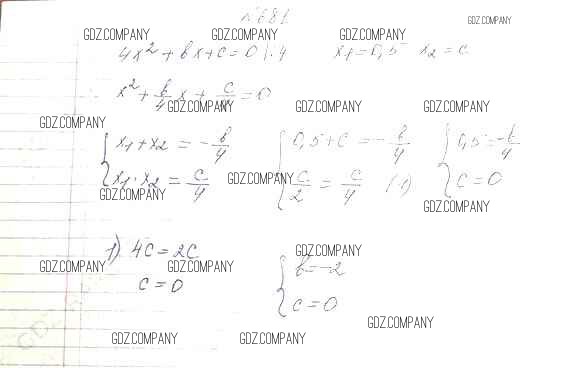 №681
GDZ.COMPANY
GDZ.COMPANY GDZ.COMPANY GDZ.COMPANY
4x² + bx + c = 0 | : 4 x₁ = 0,5 x₂ = c
x² + b/4 x + c/4 = 0
GDZ.COMPANY GDZ.COMPANY GDZ.COMPANY
GDZ.COMPANY
{ x₁ + x₂ = - b/4 { 0,5 + c = - b/4 { 0,5 = - b/4
{ x₁ · x₂ = c/4 { c/2 = c/4 (1) { c = 0
GDZ.COMPANY GDZ.COMPANY GDZ.COMPANY
1) 4c = 2c { b = -2
GDZ.COMPANY GDZ.COMPANY GDZ.COMPANY
c = 0 { c = 0
GDZ.COMPANY GDZ.COMPANY GDZ.COMPANY